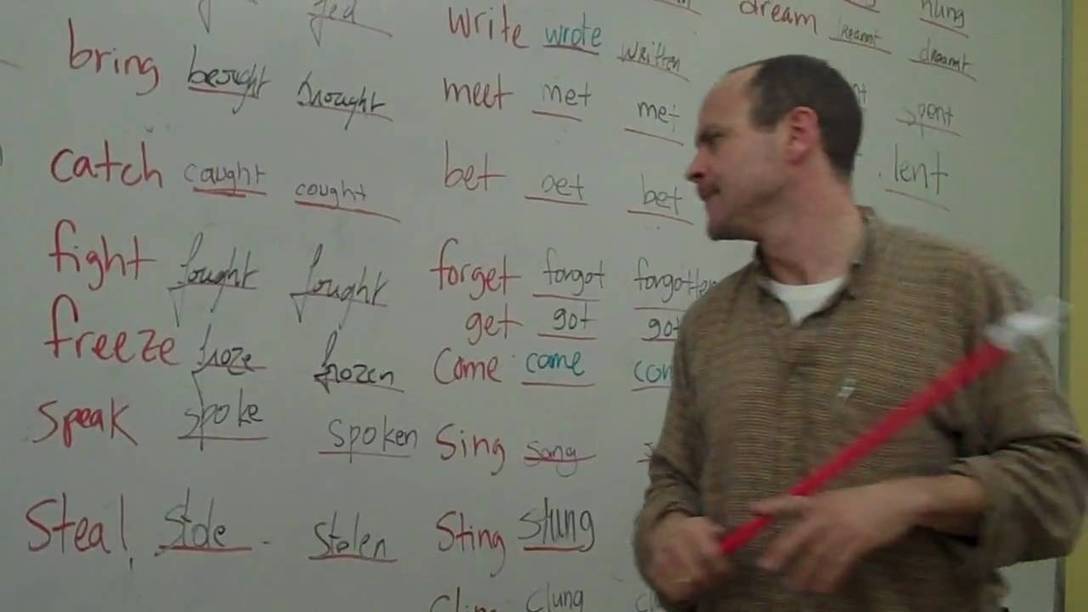 write wrote written
dream dreamt dreamt
hung
bring brought brought
meet met met
spent
catch caught caught
bet bet bet
lent
fight fought fought
forget forgot forgotten
get got got
freeze froze frozen
Come came
speak spoke spoken
Sing sang
Steal Stole Stolen
Sting stung
clung